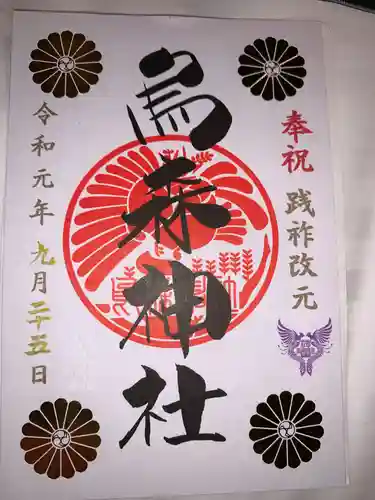 奉祝 践祚改元
烏森神社
令和元年九月二十五日